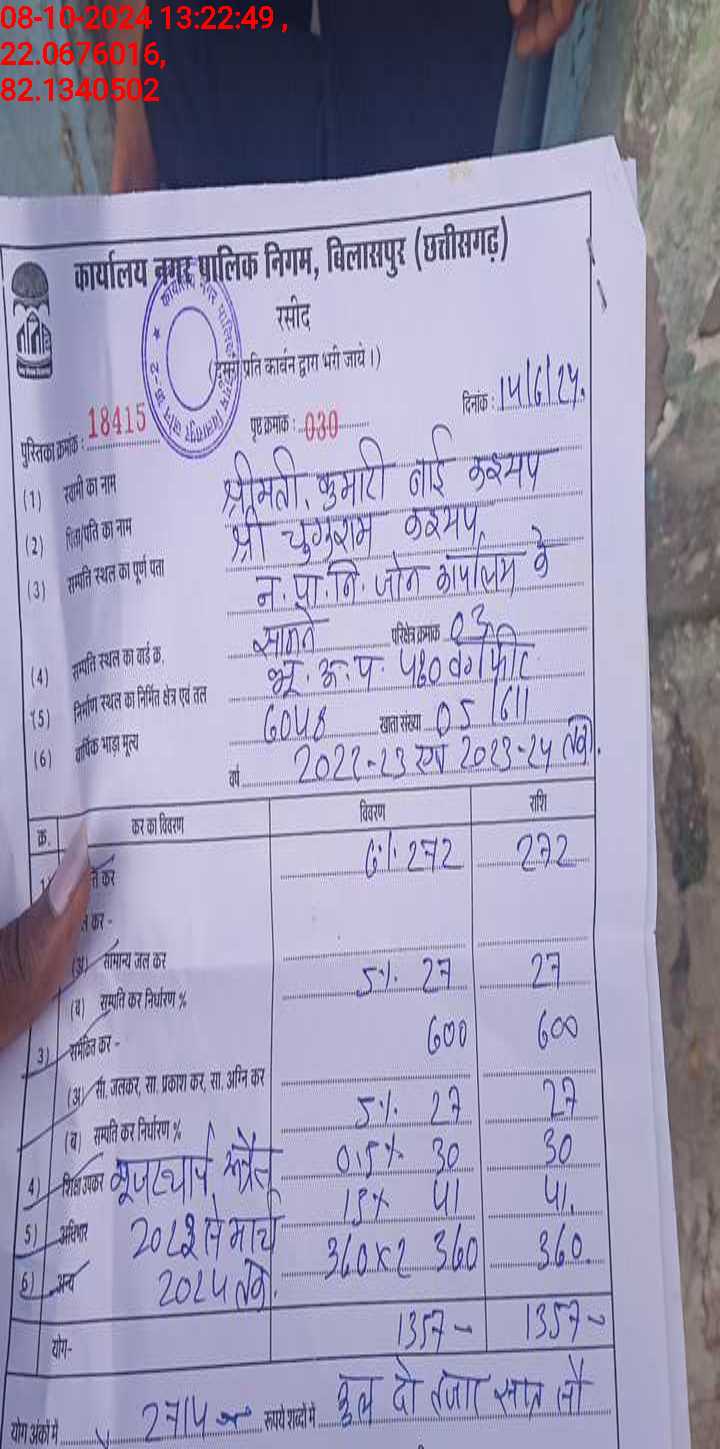 08-10-2024 13:22:49 ,
22.0676016,
82.1340502
कार्यालय नगर पालिक निगम, बिलासपुर (छत्तीसगढ़)
रसीद
(दूसरी प्रति कार्बन द्वारा भरी जावे।)
पुस्तिका क्रमांक : 18415 पृष्ठ क्रमांक : 030 दिनांक : 14/6/24.
(1) स्वामी का नाम श्रीमती. कुमारी बाई कश्यप
(2) पिता/पति का नाम श्री चुगुराम कश्यप
(3) सम्पति स्थल का पूर्ण पता न. पा. नि. जोन कार्यालय के
सामने परिक्षेत्र क्रमांक 03
(4) सम्पति स्थल का वार्ड क्र. भू. क्र. प. 480 वर्गफीट
(5) निर्माण स्थल का निर्मित क्षेत्र एवं तल
(6) वार्षिक भाड़ा मूल्य 6048 खाता संख्या 05/611
वर्ष 2022-23 एवं 2023-24 तक.
क्र. कर का विवरण विवरण राशि
1) ति कर 6% 272 272
ल कर -
(अ) सामान्य जल कर
(ब) सम्पति कर निर्धारण % 5% 27 27
3) समेकित कर - 600 600
(अ) सी. जलकर, सा. प्रकाश कर, सा. अग्नि कर
(ब) सम्पति कर निर्धारण % 5% 27 27
4) शिक्षा उपकर यूजरचार्ज अप्रैल 0.5% 30 30
5) अधिभार 2022 से मार्च 15% 41 41.
6) अन्य 2024 तक. 360x2 360 360.
योग- 1357- 1357-
योग अंकों में 2714 रूपये शब्दों में कुल दो हजार सात सौ